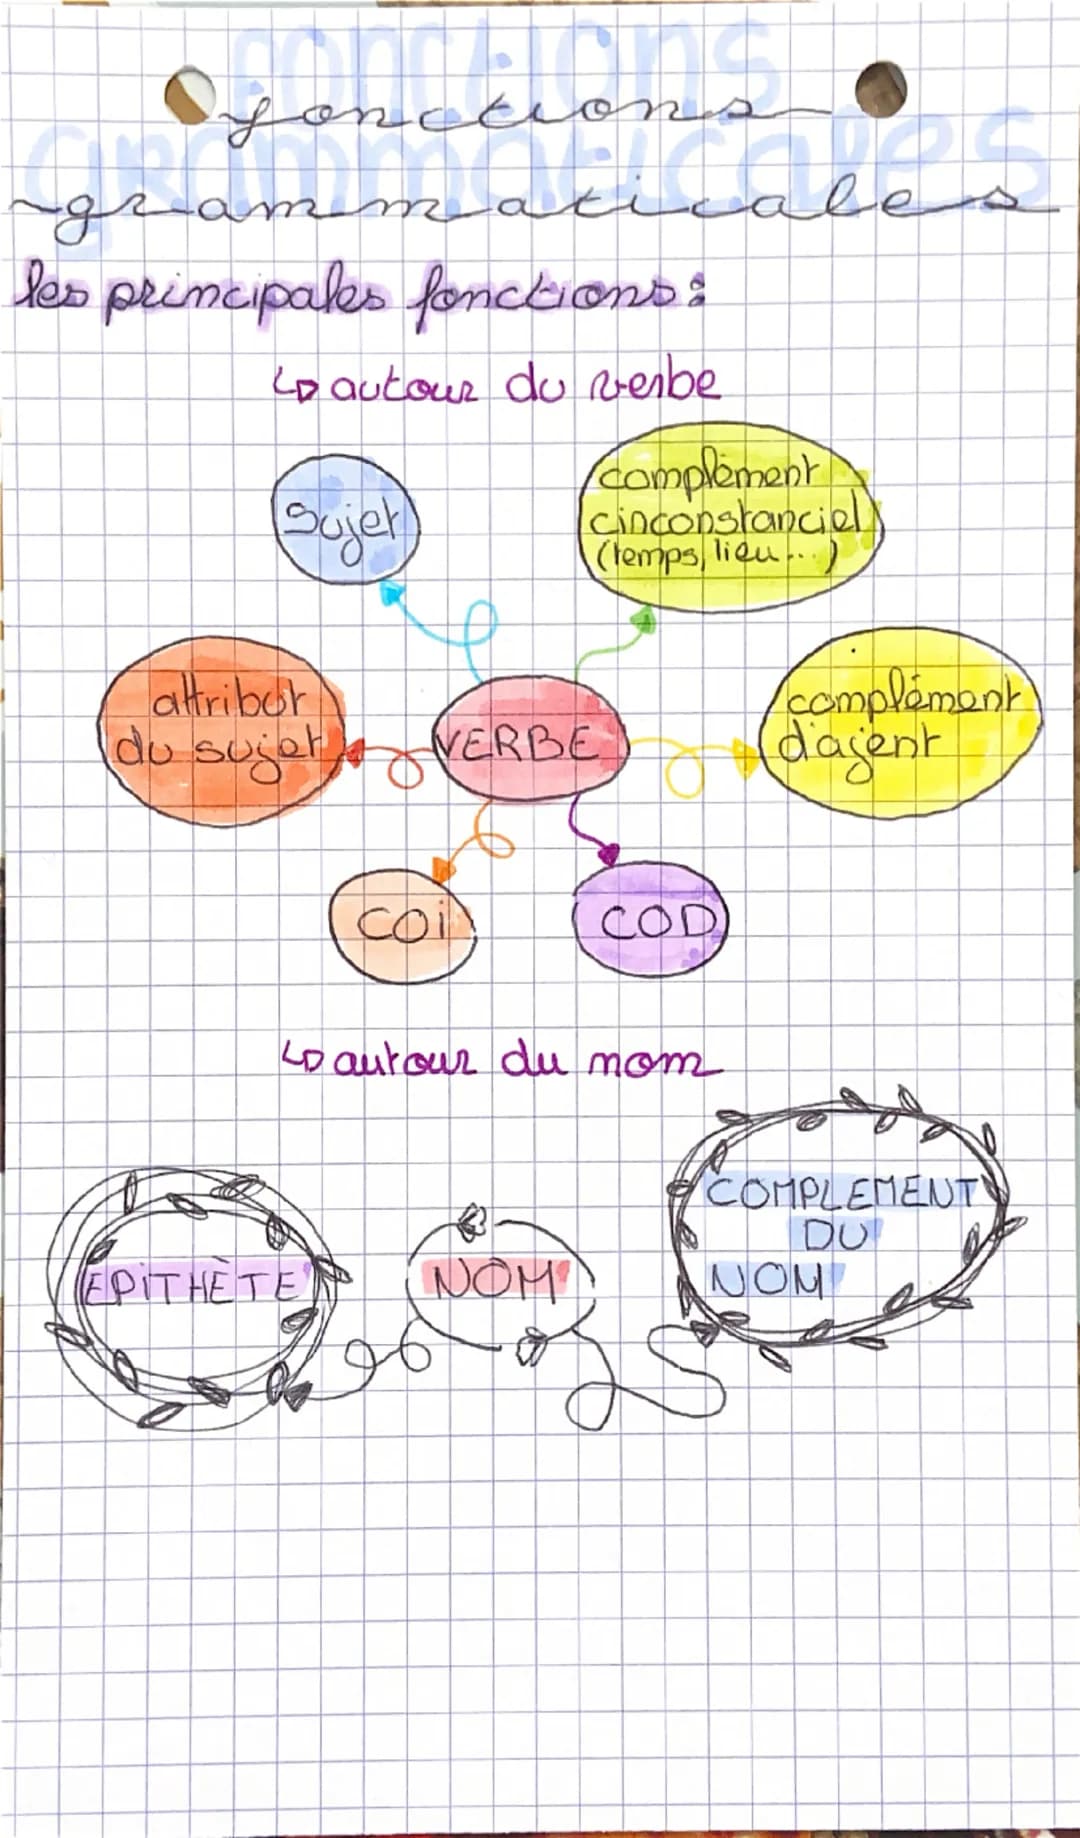 fonctions
grammaticales
fonctions
grammaticales
les principales fonctions :
↳ autour du verbe
Sujet
complément
cinconstanciel
(temps, lieu...)
attribut
du sujet
VERBE
complément
d'agent
COi
COD
↳ autour du nom
COMPLEMENT
DU
NOM
EPITHÈTE
NOM